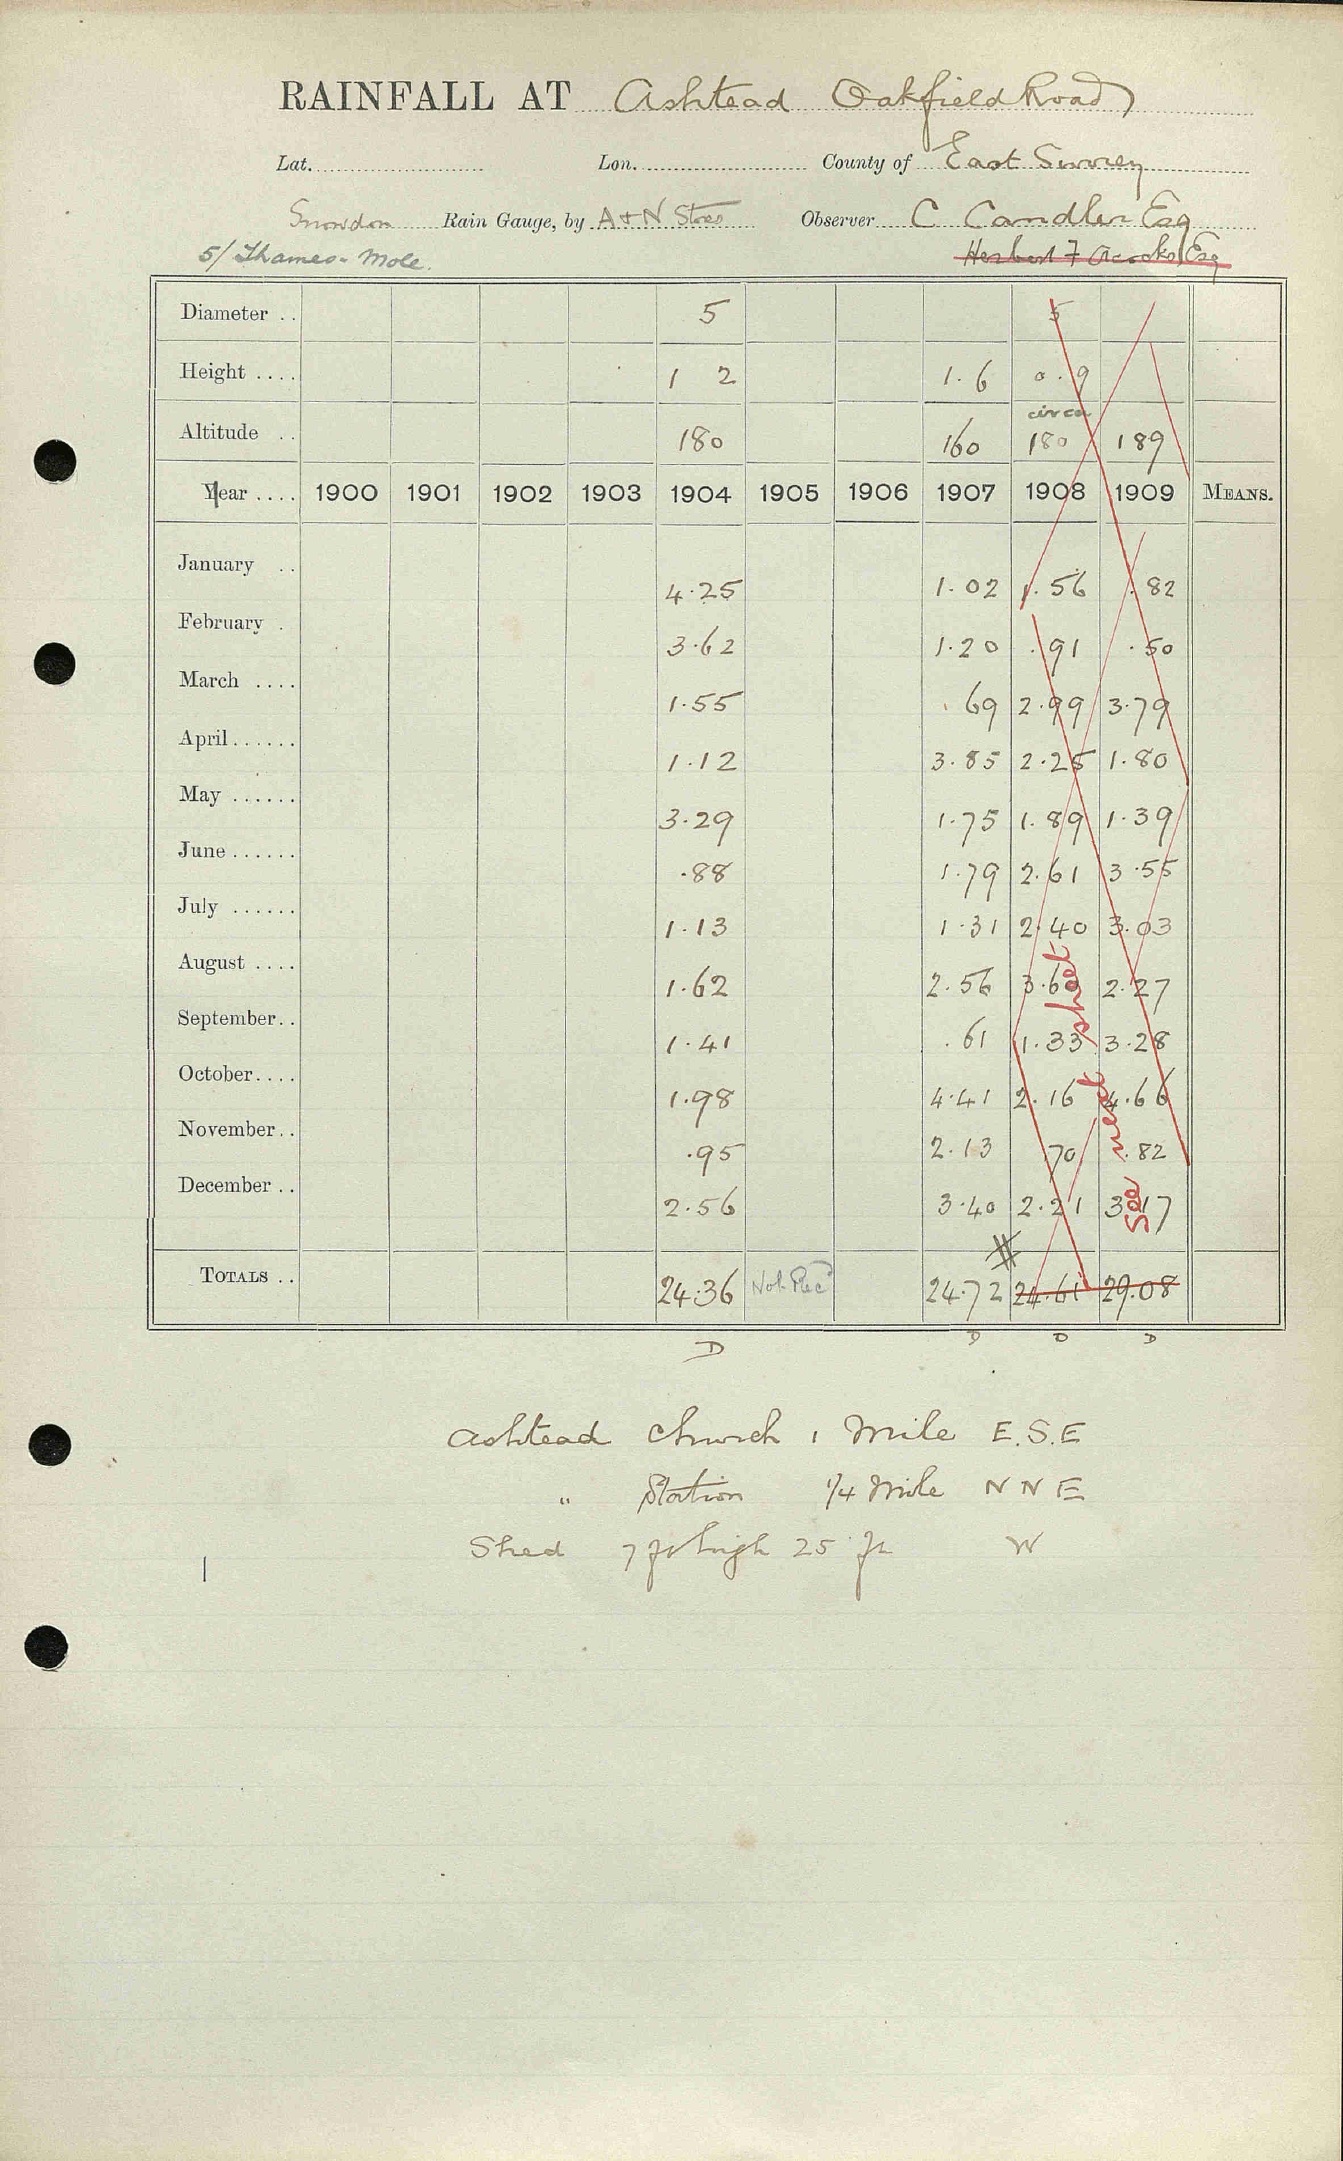 RAINFALL AT Ashtead Oakfield Road
Lat. Lon. County of East Surrey
Snowdon Rain Gauge, by A & N Stores Observer C Candler Esq
5/ Thames - Mole. Herbert F Esq
Diameter .. 5 5
Height .... 1 2 1.6 0.9
circa
Altitude .. 180 160 180 189
Year .... 1900 1901 1902 1903 1904 1905 1906 1907 1908 1909 MEANS.
January .. 4.25 1.02 1.56 .82
February . 3.62 1.20 .91 .50
March .... 1.55 .69 2.99 3.79
April ...... 1.12 3.85 2.25 1.80
May ...... 3.29 1.75 1.89 1.39
June ...... .88 1.79 2.61 3.55
July ...... 1.13 1.31 2.40 3.03
August .... 1.62 2.56 3.60 2.27
September.. 1.41 .61 1.33 3.28
October.... 1.98 4.41 2.16 4.66
November.. .95 2.13 .70 .82
December .. 2.56 3.40 2.21 3.17
see next sheet
#
TOTALS .. 24.36 Not Rec 24.72 24.61 29.08
D D D D
Ashtead Church 1 Mile E.S.E
" Station 1/4 Mile N N E
Shed 7 ft high 25 ft W